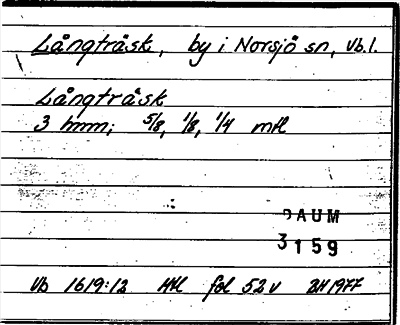 Långträsk, by i Norsjö sn, Vb.l.
Långträsk
3 hmm; 5/8, 1/8, 1/4 mtl
DAUM
3159
Vb 1619:12 Hkl fol 52v 2H 1977